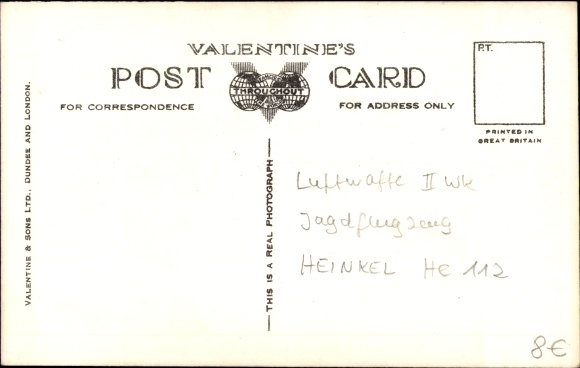 VALENTINE'S
POST CARD
THROUGHOUT
FOR CORRESPONDENCE
FOR ADDRESS ONLY
P.T.
PRINTED IN
GREAT BRITAIN
VALENTINE & SONS LTD., DUNDEE AND LONDON.
THIS IS A REAL PHOTOGRAPH
Luftwaffe II Wk
Jagdflugzeug
HEINKEL HE 112
8€